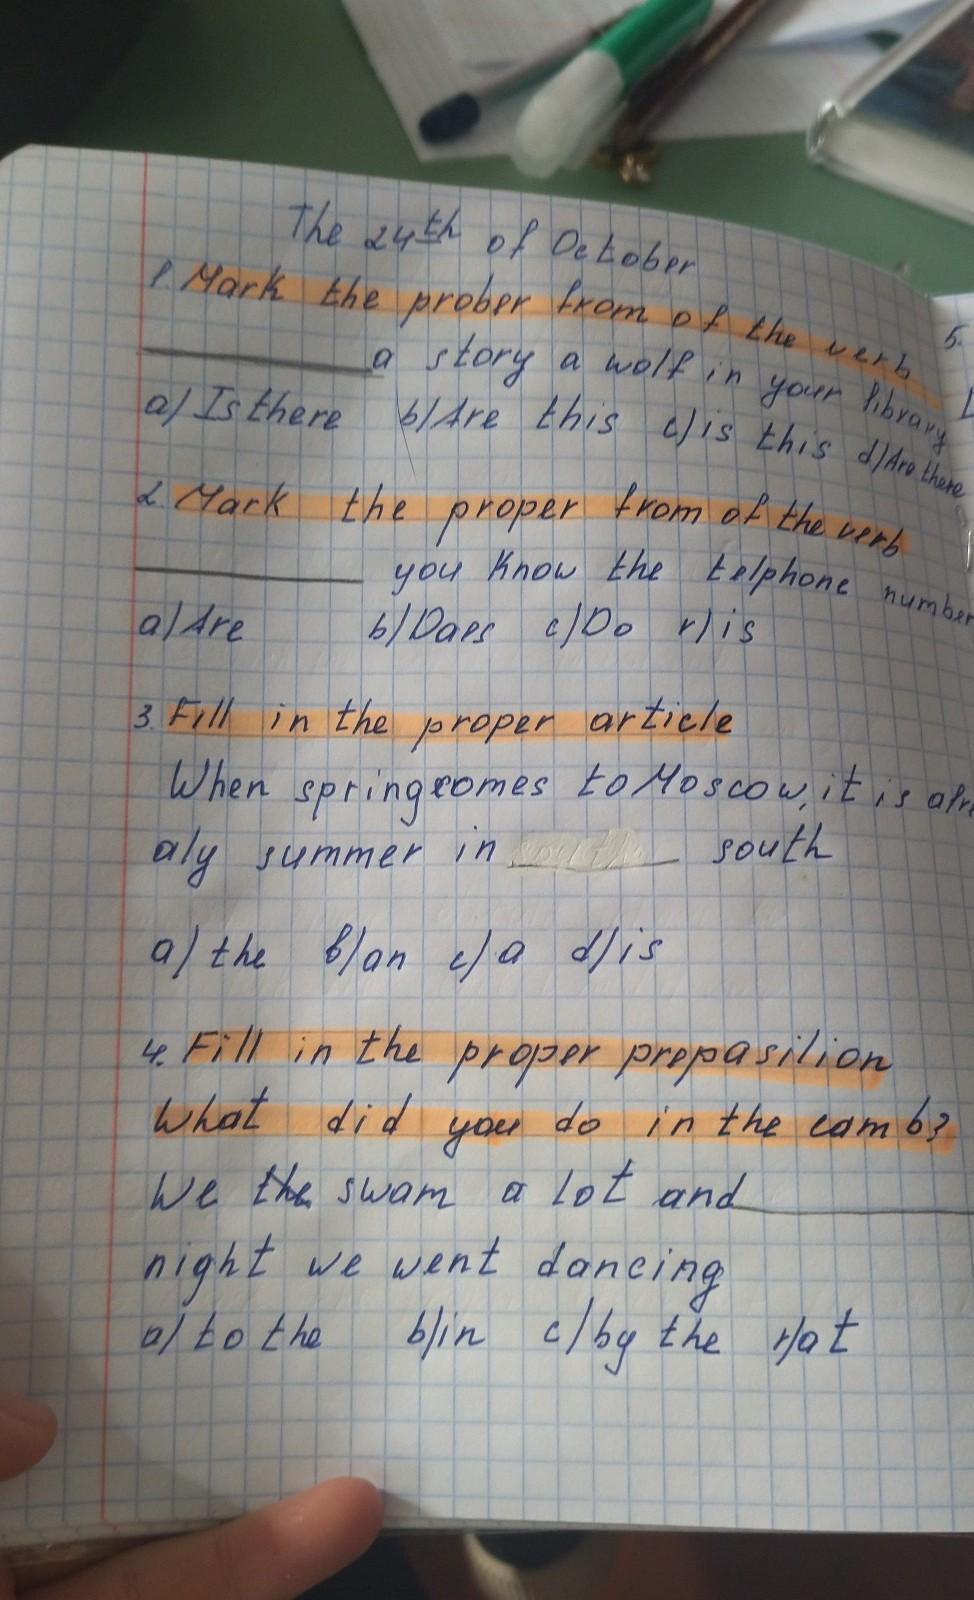 The 24th of October
1. Mark the prober from of the verb
a story a wolf in your library
a) Is there b) Are this c) is this d) Are there
2. Mark the proper from of the verb
you know the telphone number
a) Are b) Daes c) Do r) is
3. Fill in the proper article
When spring comes to Moscow, it is alre
aly summer in south
a) the b) an c) a d) is
4. Fill in the proper prepasilion
What did you do in the camb?
We the swam a lot and
night we went dancing
a) to the b) in c) by the r) at
5.